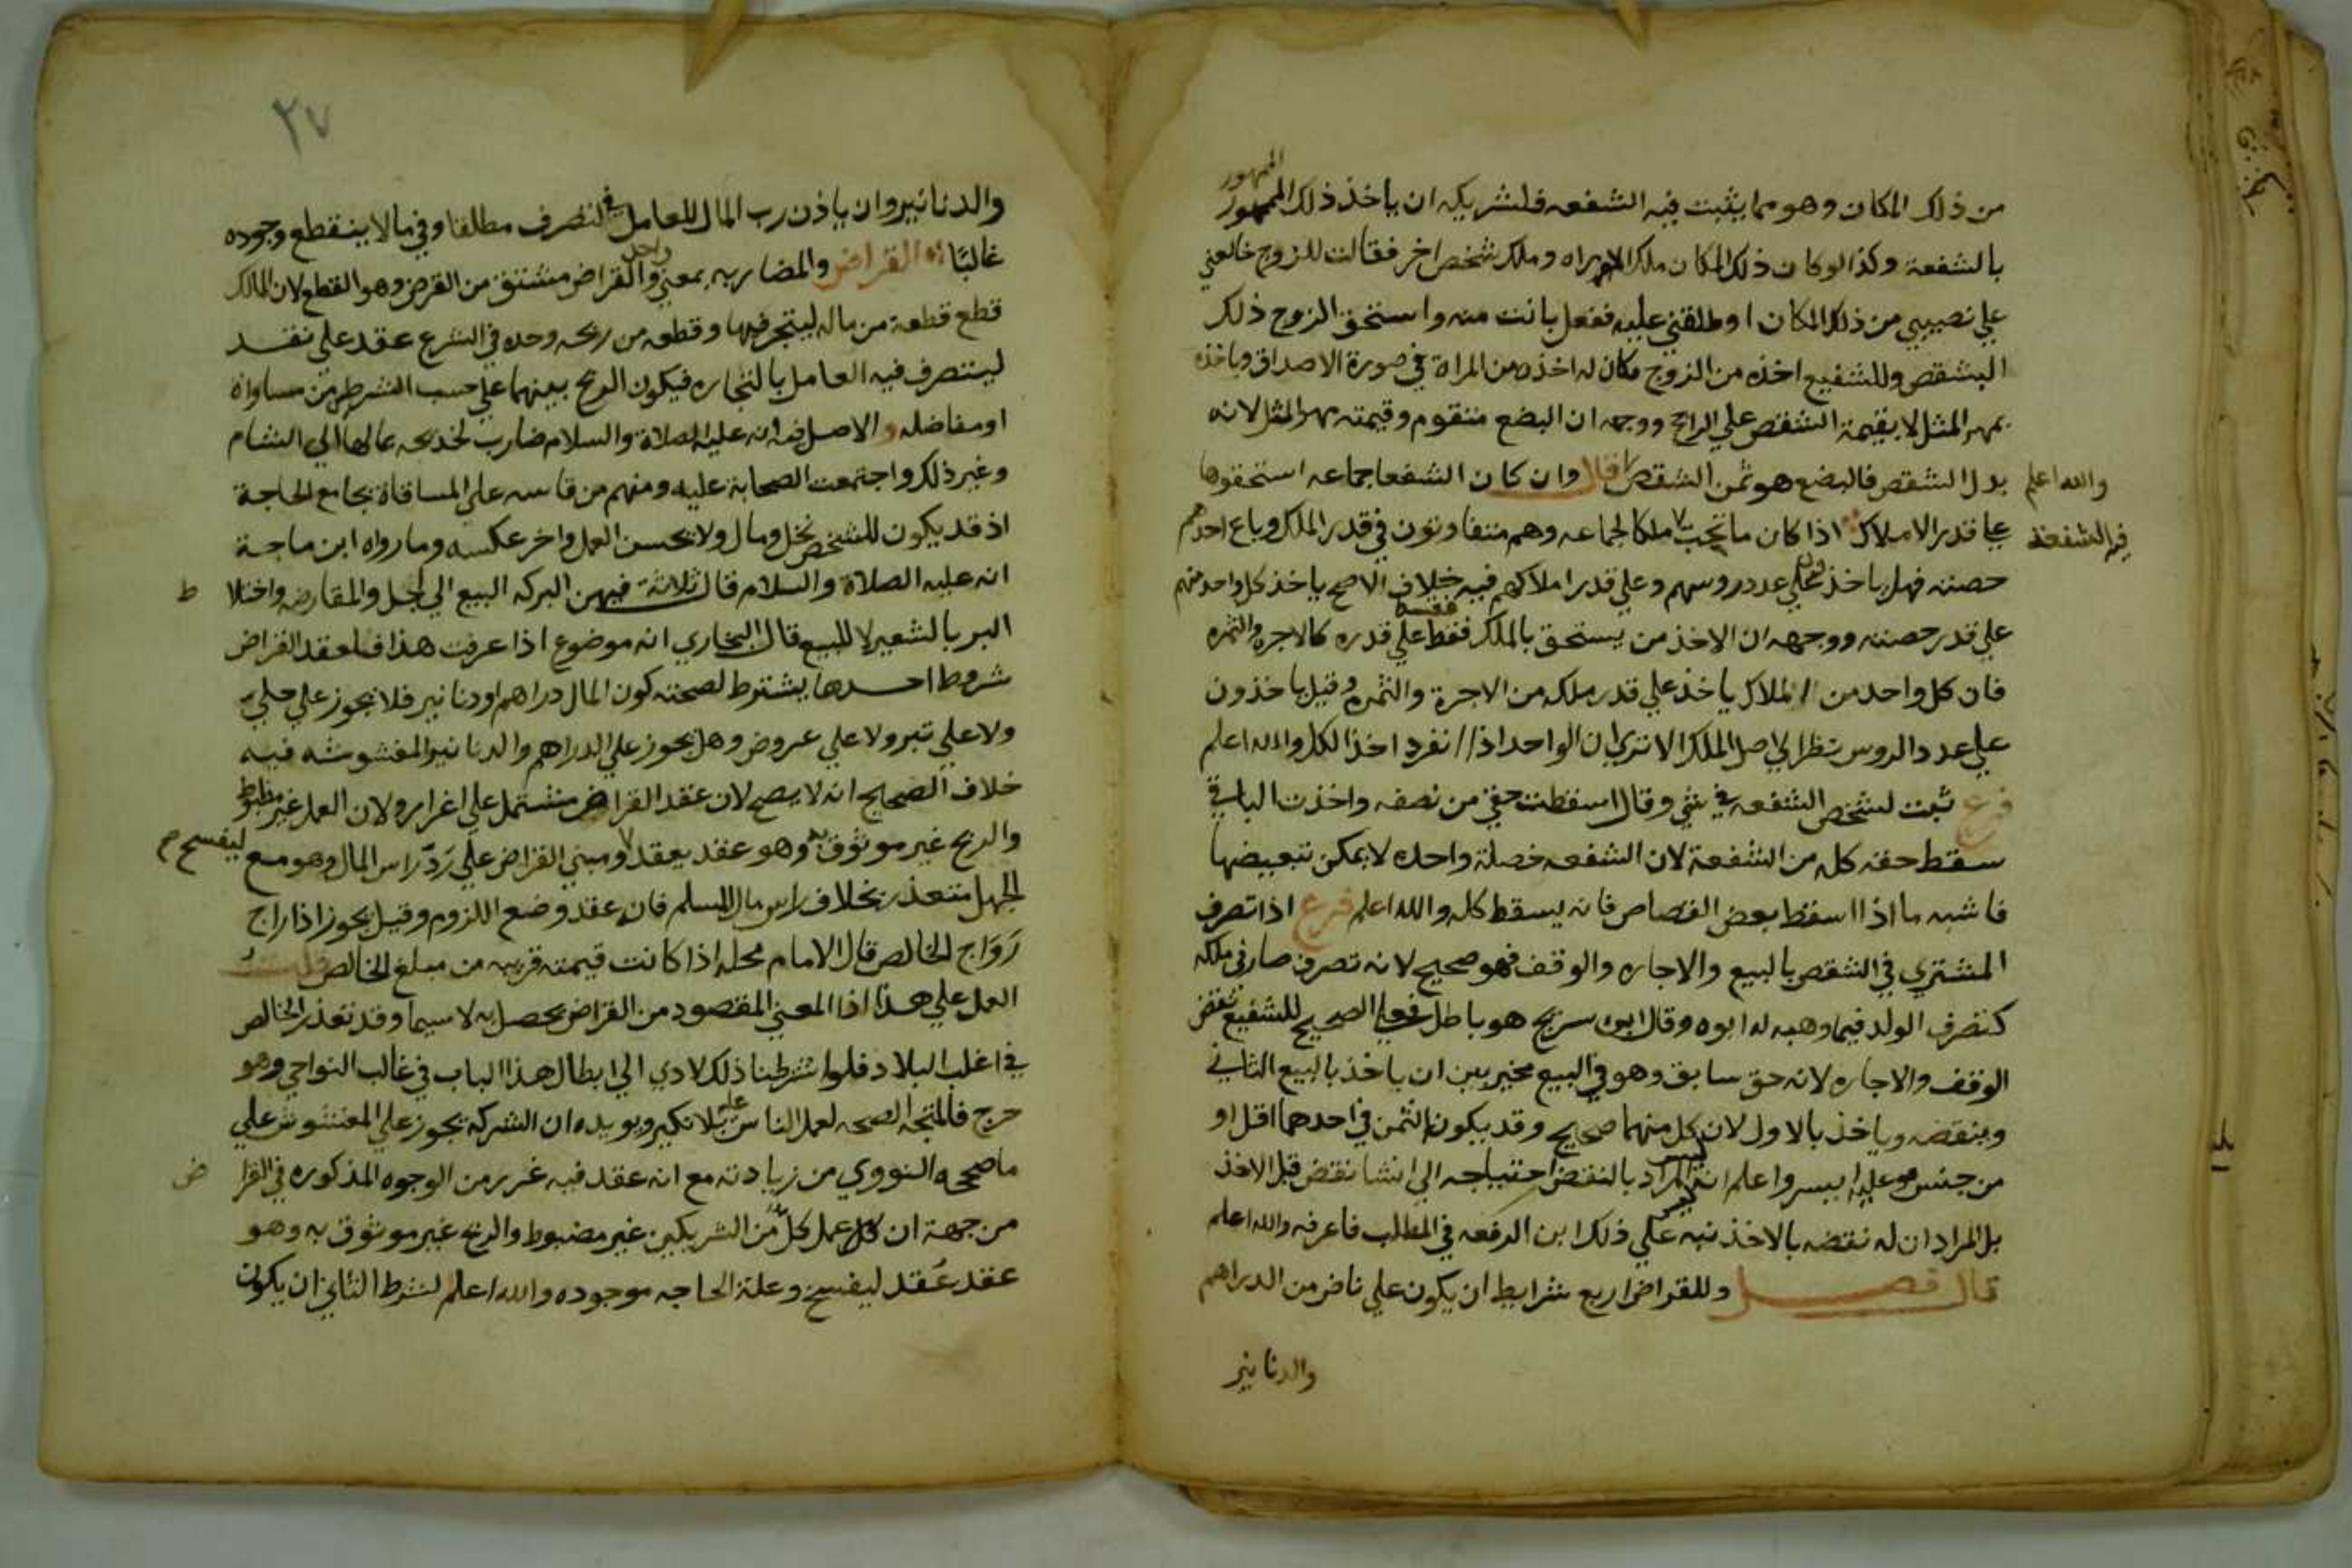 الممهور
من ذلك المكان وهو مما يثبت فيه الشفعه فلشريكه ان ياخذ ذلك الممهور
بالشفعة وكذا لو كان ذلك المكان ملك المراه وملك شخص اخر فقالت للزوج خالعني
علي نصيبي من ذلك المكان او طلقني عليه ففعل بانت منه واستحق الزوج ذلك
الشقص وللشفيع اخذه من الزوج مكان له اخذه من المراة في صورة الاصداق وياخذه
بمهر المثل لا بقيمة الشقص علي الراجح ووجهه ان البضع متقوم وقيمته مهر المثل لانه
بدل الشقص فالبضع هو ثمن الشقص قال وان كان الشفعا جماعه استحقوها
والله اعلم
علي قدر الاملاك اذا كان ما تجب ملكا لجماعه وهم متفاوتون في قدر الملك وباع احدهم
فيه الشفعة
حصته فهل ياخذون علي عدد روسهم وعلي قدر املاكهم فيه خلاف الاصح ياخذ كل واحد منهم
علي قدر حصته ووجهه ان الاخذ من يستحق بالملك فقسط علي قدره كالاجره والثمره
فان كل واحد من الملاك ياخذ علي قدر ملكه من الاجرة والثمره وقيل ياخذون
علي عدد الروس نظرا الي اصل الملك الا تري ان الواحد اذا انفرد اخذ الكل والله اعلم
فرع ثبت لشخص الشفعه في شي وقال اسقطت حقي من نصفه واخذت الباقي
سقط حقه كله من الشفعة لان الشفعه خصلة واحده لا يمكن تبعيضها
فاشبه ما اذا اسقط بعض القصاص فانه يسقط كله والله اعلم فرع اذا تصرف
المشتري في الشقص بالبيع والاجاره والوقف فهو صحيح لانه تصرف صار في ملكه
كتصرف الولد فيما وهبه له ابوه وقال ابن سريج هو باطل فعلي الصحيح للشفيع نقض
الوقف والاجاره لانه حق سابق وهو في البيع مخير بين ان ياخذ بالبيع الثاني
وينقضه وياخذ بالاول لان كل منهما صحيح وقد يكون الثمن في احدهما اقل او
من جنس هو عليه ايسر واعلم انه ليس المراد بالنقض احتياجه الي انشا نقض قبل الاخذ
بل المراد ان له نقضه بالاخذ نبه علي ذلك ابن الرفعه في المطلب فاعرفه والله اعلم
قال فصل وللقراض اربع شرايط ان يكون علي ناض من الدراهم
والدنانير
٢٧
والدنانير وان ياذن رب المال للعامل في التصرف مطلقا وفي ما لا ينقطع وجوده
غالبًا القراض والمضاربه بمعني واحد والقراض مشتق من القرض وهو القطع لان المالك
قطع قطعة من ماله ليتجر فيها وقطعه من ربحه وحده في الشرع عقد علي نقد
ليتصرف فيه العامل بالتجاره فيكون الربح بينهما علي حسب الشرط من مساواة
او مفاضله والاصل فيه انه عليه الصلاة والسلام ضارب لخديجه بمالها الي الشام
وغير ذلك واجتمعت الصحابة عليه ومنهم من قاسه علي المساقاة بجامع الحاجة
اذ قد يكون للشخص نخل ومال ولا يحسن العمل واخر عكسه وما رواه ابن ماجة
انه عليه الصلاة والسلام قال ثلاثة فيهن البركه البيع الي اجل والمقارضه واختلا ط
البر بالشعير لا للبيع قال البخاري انه موضوع اذا عرفت هذا فلعقد القراض
شروط احدها يشترط لصحته كون المال دراهم او دنانير فلا يجوز علي حلي
ولا علي تبر ولا علي عروض وهل يجوز علي الدراهم والدنانير المغشوشه فيه
خلاف الصحيح انه لا يصح لان عقد القراض مشتمل علي اغرار ولان العمل غير مظبوط
والربح غير موثوق به وهو عقد يعقد ليفسخ ومبني القراض علي رَدّ راس المال وهو مع
الجهل متعذر بخلاف راس مال السلم فان عقد وضع اللزوم وقيل يجوز اذا راج
رَوَاج الخالص قال الامام محله اذا كانت قيمته قريبه من مبلغ الخالص قلت
العمل علي هذا اذا المعني المقصود من القراض يحصل به لا سيما وقد تعذر الخالص
في اغلب البلاد فلو اشترطنا ذلك لادي الي ابطال هذا الباب في غالب النواحي وهو
حرج فالمتجه الصحه لعمل الناس عليه بلا نكير ويويده ان الشركه تجوز علي المغشوش علي
ما صححه النووي من زيادته مع انه عقد فيه غرر من الوجوه المذكوره في القرا ض
من جهة ان كل عمل كل من الشريكين غير مضبوط والربح غير موثوق به وهو
عقد عُقد ليفسخ وعلة الحاجه موجوده والله اعلم لشرط الثاني ان يكون